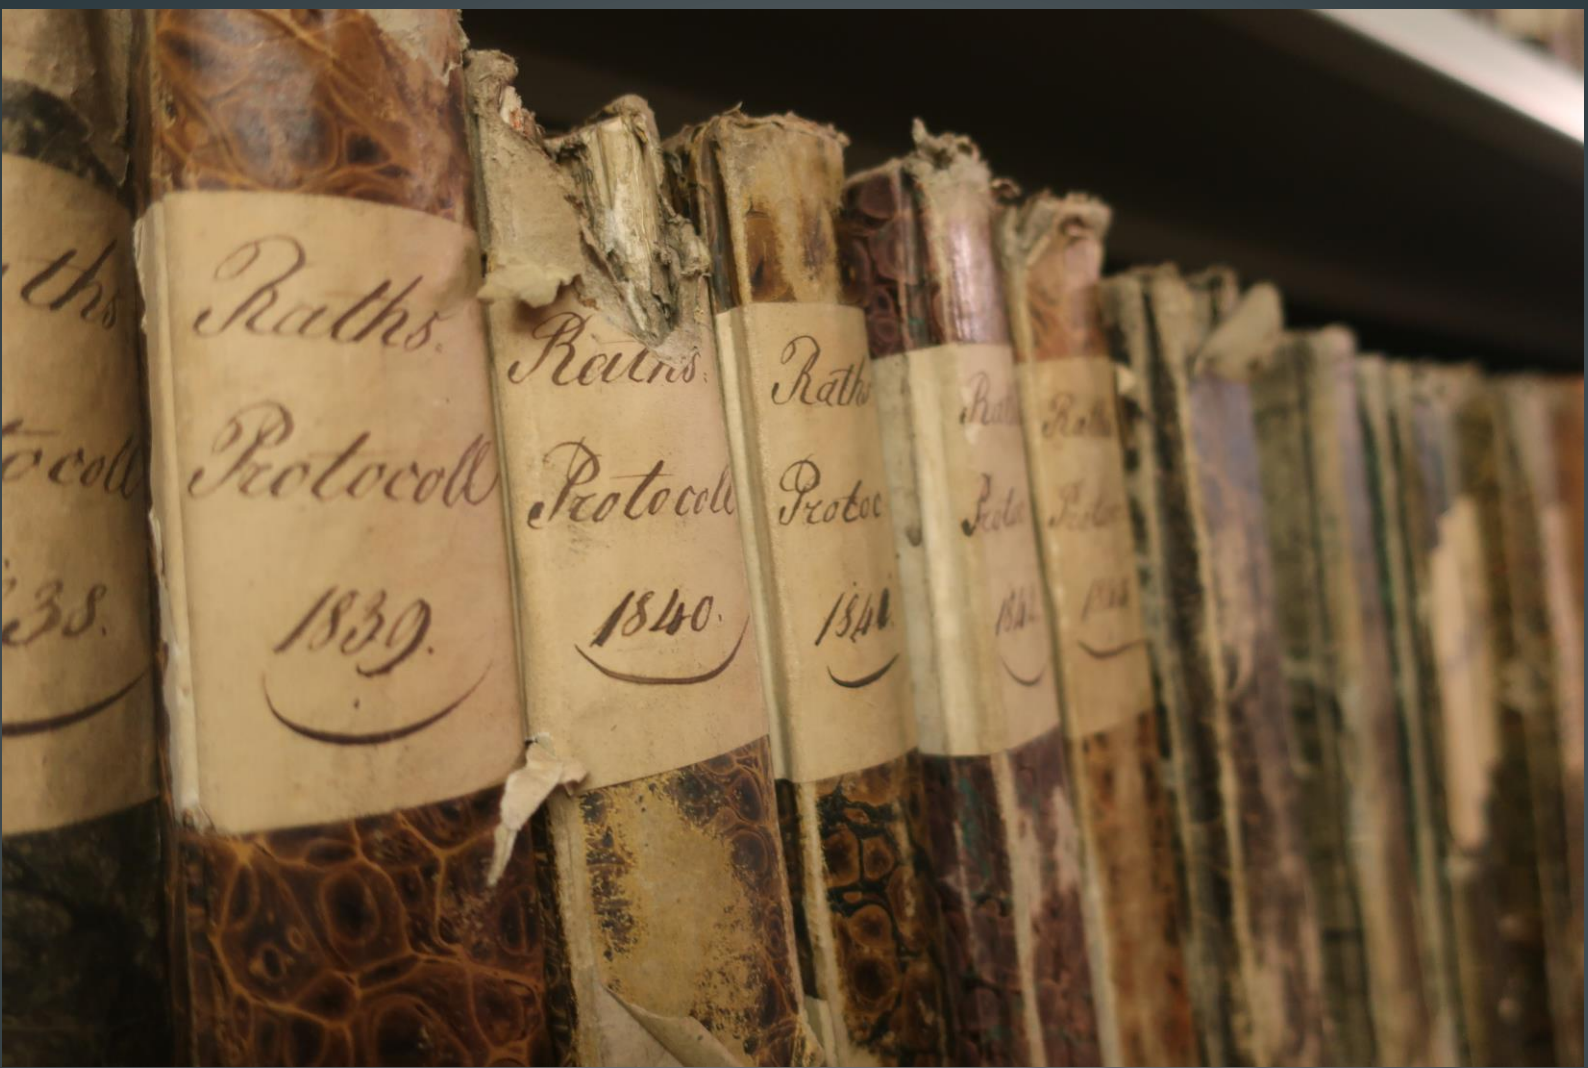 ths
tocoll
38.
Raths.
Protocoll
1839.
Raths.
Protocoll
1840.
Raths
Protoc
1841.
Rat
Protoc
Raths
Protoc